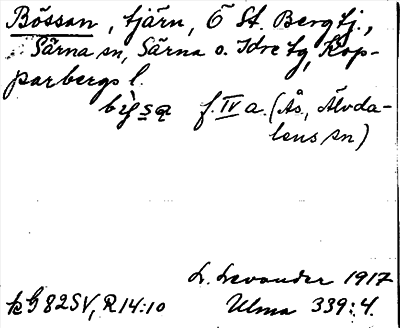 Bössan, tjärn, Ö St. Bergtj.,
Särna sn, Särna o. Idre tg, Kop-
parbergs l.
bìsa f. IV a. (Ås, Älvda-
lens sn)
L. Levander 1917
kG 82SV, R 14:10 Ulma 339:4.